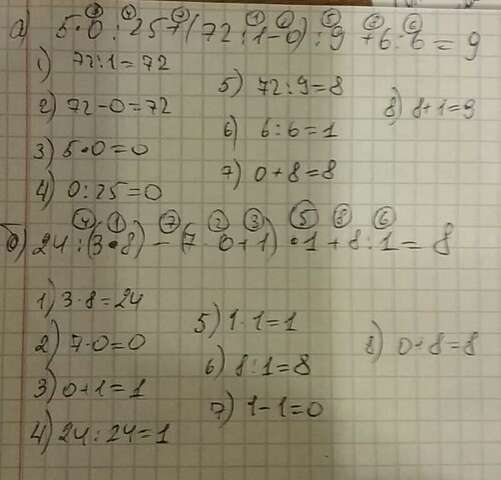 а) 5·0:25+(72:1-0):9+6:6=9
1) 72:1=72
2) 72-0=72
3) 5·0=0
4) 0:25=0
5) 72:9=8
6) 6:6=1
7) 0+8=8
8) 8+1=9
б) 24:(3·8)-(7·0+1)·1+8:1=8
1) 3·8=24
2) 7·0=0
3) 0+1=1
4) 24:24=1
5) 1·1=1
6) 8:1=8
7) 1-1=0
8) 0+8=8